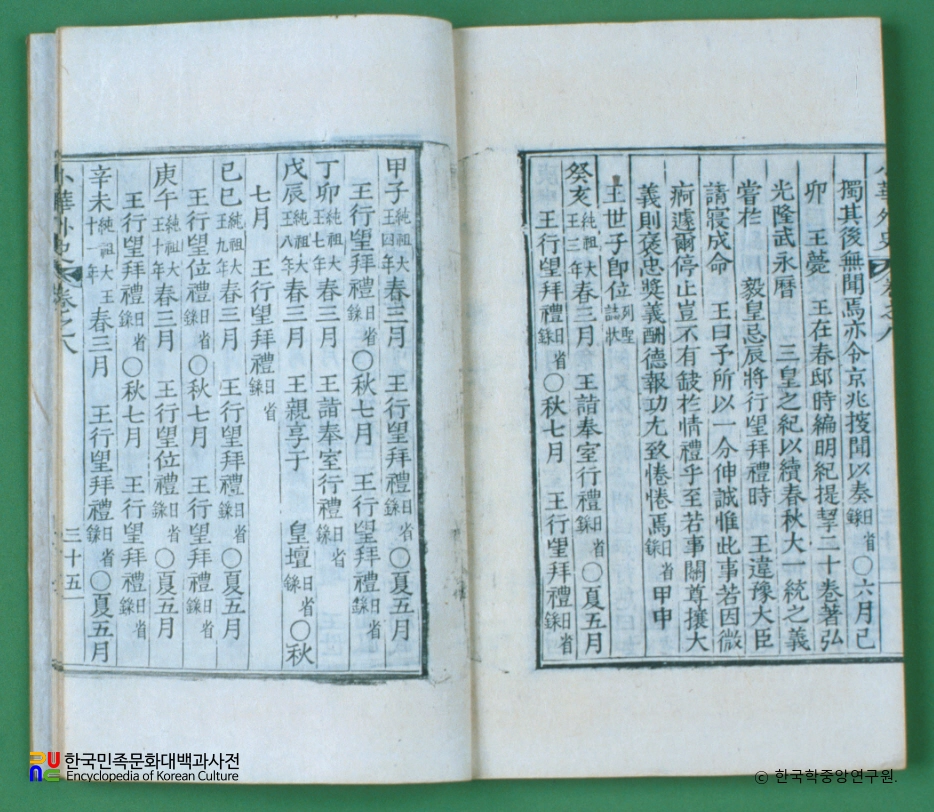 小華外史 卷之八
獨其後無聞焉亦令京兆搜聞以奏日省錄○六月己
卯 王薨 王在春邸時編明紀提挈二十卷著弘
光隆武永曆 三皇之紀以續春秋大一統之義
嘗於 毅皇忌辰將行望拜禮時 王違豫大臣
請寢成命 王曰予所以一分伸誠惟此事若因微
痾遽爾停止豈不有缺於情禮乎至若事關尊攘大
義則褒忠奬義酬德報功尤致惓惓焉日省錄 甲申
王世子卽位列聖誌狀
癸亥純祖大王三年春三月 王詣奉室行禮日省錄○夏五月
王行望拜禮日省錄○秋七月 王行望拜禮日省錄
甲子純祖大王四年春三月 王行望拜禮日省錄○夏五月
王行望拜禮日省錄○秋七月 王行望拜禮日省錄
丁卯純祖大王七年春三月 王詣奉室行禮日省錄
戊辰純祖大王八年春三月 王親享于 皇壇日省錄○秋
七月 王行望拜禮日省錄
己巳純祖大王九年春三月 王行望拜禮日省錄○夏五月
王行望位禮日省錄○秋七月 王行望拜禮日省錄
庚午純祖大王十年春三月 王行望位禮日省錄○夏五月
王行望拜禮日省錄○秋七月 王行望拜禮日省錄
辛未純祖大王十一年春三月 王行望拜禮日省錄○夏五月
小華外史 卷之八 三十五
한국민족문화대백과사전
Encyclopedia of Korean Culture
ⓒ 한국학중앙연구원.